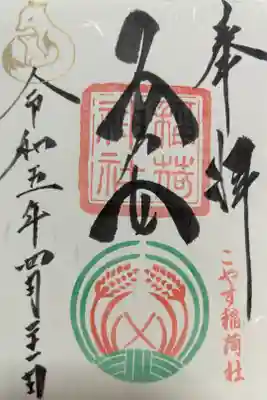 奉拝
こやす稲荷社
子安
稲荷
神社
令和五年四月二十一日